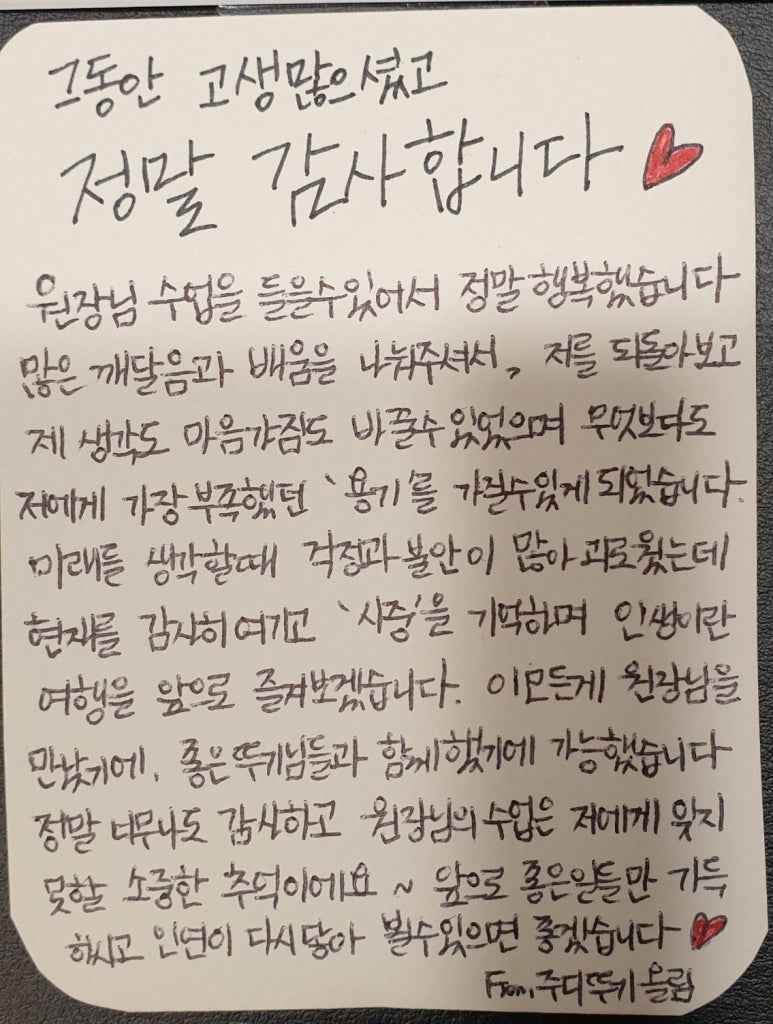 그동안 고생많으셨고
정말 감사합니다
원장님 수업을 들을수있어서 정말행복했습니다
많은 깨달음과 배움을 나눠주셔서, 저를 되돌아보고
제 생각도 마음가짐도 바꿀수있었으며 무엇보다도
저에게 가장부족했던 '용기'를 가질수있게되었습니다.
미래를 생각할때 걱정과불안이 많아 괴로웠는데
현재를 감사히여기고 '시중'을 기억하며 인생이란
여행을 앞으로 즐겨보겠습니다. 이모든게 원장님을
만났기에, 좋은뚜기님들과 함께했기에 가능했습니다
정말 너무나도 감사하고 원장님의수업은 저에게 잊지
못할 소중한 추억이에요 ~ 앞으로 좋은일들만 가득
하시고 인연이 다시닿아 뵐수있으면 좋겠습니다
From. 주디뚜기올림